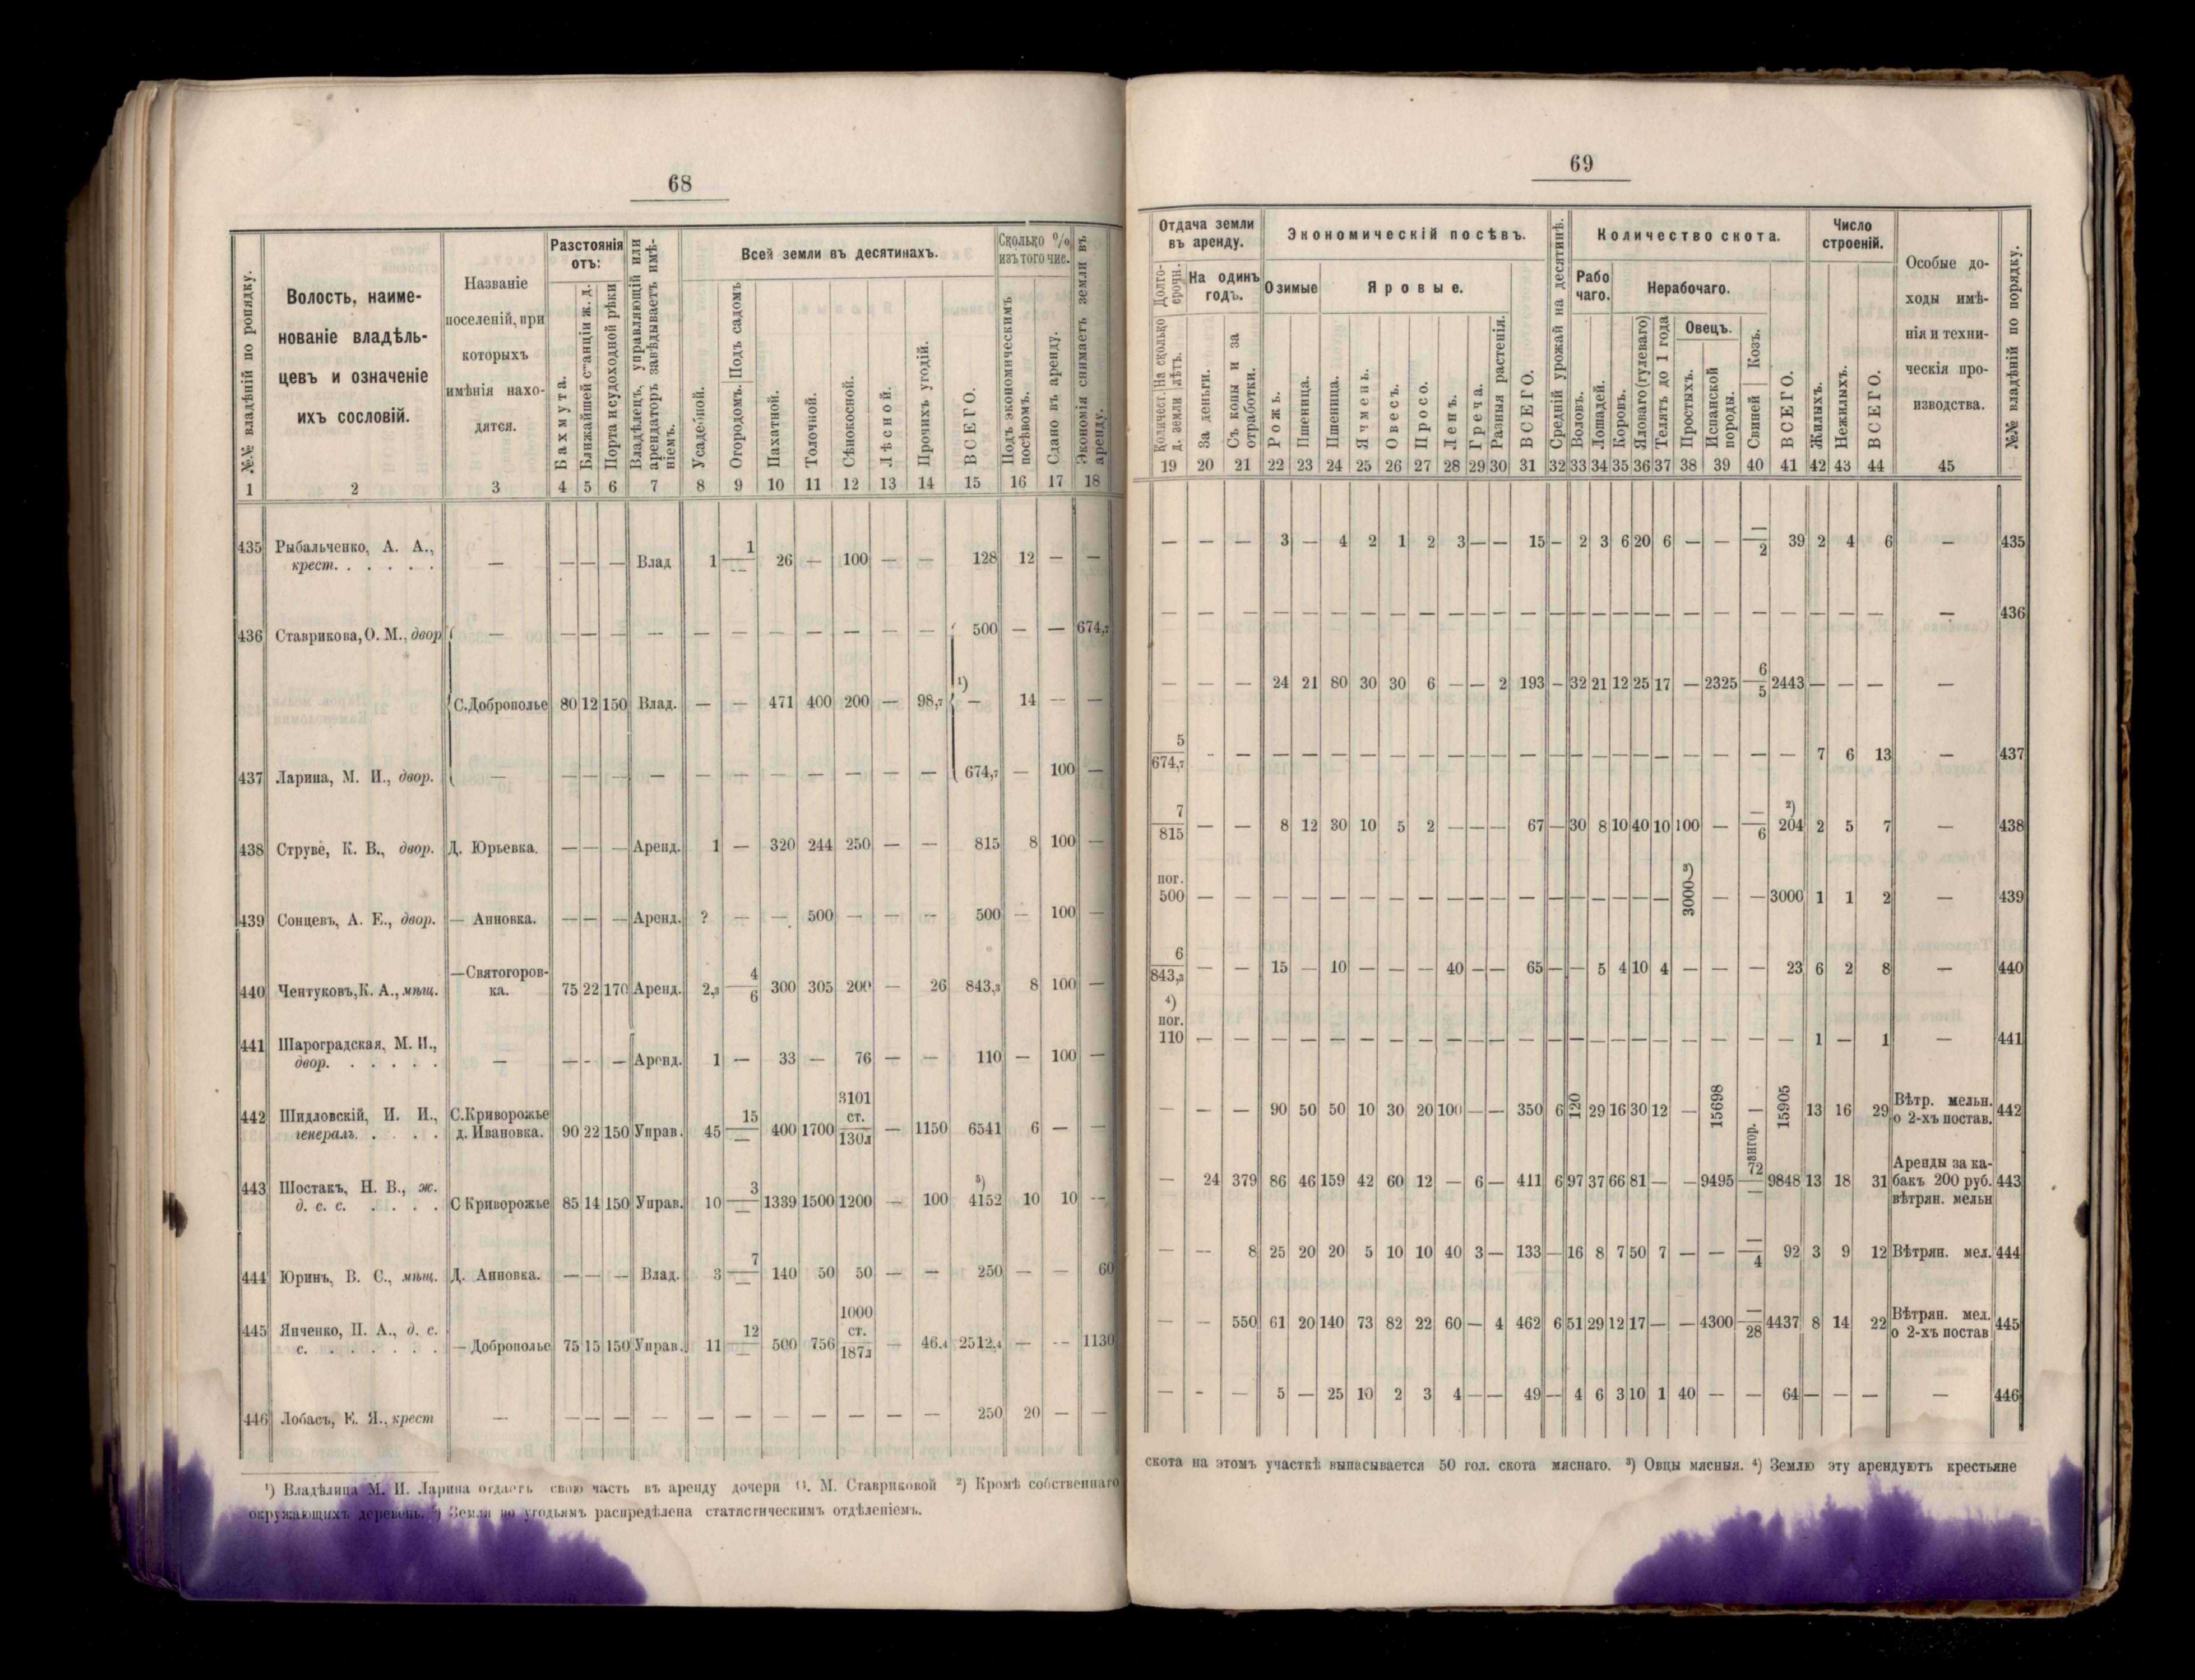 68
№№ владѣній по порядку.
Волость, наиме-
нованіе владѣль-
цевъ и означеніе
ихъ сословій.
Названіе
поселеній, при
которыхъ
имѣнія нахо-
дятся.
Разстоянія
отъ:
Бахмута.
Ближайшей станціи ж. д.
Порта и судоходной рѣки
Владѣлецъ, управляющій или
арендаторъ завѣдываетъ имѣ-
ніемъ.
Всей земли въ десятинахъ.
Усадебной.
Огородомъ. Подъ садомъ
Пахатной.
Толочной.
Сѣнокосной.
Лѣсной.
Прочихъ угодій.
ВСЕГО.
Сколько %
изъ того чис.
Подъ экономическимъ
посѣвомъ.
Сдано въ аренду.
Экономія снимаетъ земли въ
аренду.
1 2 3 4 5 6 7 8 9 10 11 12 13 14 15 16 17 18
435 Рыбальченко, А. А.,
крест. . . . . . — — — — Влад 1 1/— 26 — 100 — — 128 12 — —
436 Ставрикова, О. М., двор — — — — — — — — — — — — 500 — — 674,7
С. Доброполье 80 12 150 Влад. — — 471 400 200 — 98,7 ¹) — 14 — —
437 Ларина, М. И., двор. — — — — — — — — — — — — 674,7 — 100 —
438 Струве, К. В., двор. Д. Юрьевка. — — — Аренд. 1 — 320 244 250 — — 815 8 100 —
439 Сонцевъ, А. Е., двор. — Анновка. — — — Аренд. ? — — 500 — — — 500 — 100 —
440 Чентуковъ, К. А., мѣщ. —Святогоров-
ка. 75 22 170 Аренд. 2,3 4/6 300 305 200 — 26 843,3 8 100 —
441 Шароградская, М. И.,
двор. . . . . . — — — — Аренд. 1 — 33 — 76 — — 110 — 100 —
442 Шидловскій, И. И., С. Криворожье
генералъ. . . . . д. Ивановка. 90 22 150 Управ. 45 15/— 400 1700 3101 ст./130л — 1150 6541 6 — —
443 Шостакъ, Н. В., ж.
д. с. с. . . . . С Криворожье 85 14 150 Управ. 10 3/— 1339 1500 1200 — 100 ⁵) 4152 10 10 —
444 Юринъ, В. С., мѣщ. Д. Анновка. — — — Влад. 3 7/— 140 50 50 — — 250 — — 60
445 Янченко, П. А., д. с.
с. . . . . . . — Доброполье 75 15 150 Управ. 11 12/— 500 756 1000 ст./187л — 46,4 2512,4 — — 1130
446 Лобасъ, Е. Я., крест — — — — — — — — — — — — 250 20 — —
¹) Владѣлица М. И. Ларина отдаетъ свою часть въ аренду дочери О. М. Ставриковой ²) Кромѣ собственнаго
окружающихъ деревень. ⁵) Земля по угодьямъ распредѣлена статистическимъ отдѣленіемъ.
69
Отдача земли
въ аренду.
Долго-
срочн.
Количест. На сколько
д. земли лѣтъ.
На одинъ
годъ.
За деньги.
Съ копы и за
отработки.
Экономическій посѣвъ.
Озимые
Яровые.
Рожь.
Пшеница.
Пшеница.
Ячмень.
Овесъ.
Просо.
Ленъ.
Греча.
Разныя растенія.
ВСЕГО.
Средній урожай на десятинѣ.
Количество скота.
Рабо
чаго.
Нерабочаго.
Воловъ.
Лошадей.
Коровъ.
Яловаго (гулеваго)
Телятъ до 1 года
Овецъ.
Простыхъ.
Испанской
породы.
Свиней Козъ.
ВСЕГО.
Число
строеній.
Жилыхъ.
Нежилыхъ.
ВСЕГО.
Особые до-
ходы имѣ-
нія и техни-
ческія про-
изводства.
№№ владѣній по порядку.
19 20 21 22 23 24 25 26 27 28 29 30 31 32 33 34 35 36 37 38 39 40 41 42 43 44 45
— — — 3 — 4 2 1 2 3 — — 15 — 2 3 6 20 6 — — —/2 39 2 4 6 — 435
— — — — — — — — — — — — — — — — — — — — — — — — — — — 436
— — — 24 21 80 30 30 6 — — 2 193 — 32 21 12 25 17 — 2325 6/5 2443 — — — —
5/674,7 — — — — — — — — — — — — — — — — — — — — — — 7 6 13 — 437
7/815 — — 8 12 30 10 5 2 — — — 67 — 30 8 10 40 10 100 — —/6 ²) 204 2 5 7 — 438
пог.
500 — — — — — — — — — — — — — — — — — — 3000 ³) — — 3000 1 1 2 — 439
6/843,3 — — 15 — 10 — — — 40 — — 65 — — 5 4 10 4 — — — 23 6 2 8 — 440
⁴)
пог.
110 — — — — — — — — — — — — — — — — — — — — — — 1 — 1 — 441
— — — 90 50 50 10 30 20 100 — — 350 6 120 29 16 30 12 — 15698 — 15905 13 16 29 Вѣтр. мельн.
о 2-хъ постав. 442
— 24 379 86 46 159 42 60 12 — 6 — 411 6 97 37 66 81 — — 9495 ангор. 72/— 9848 13 18 31 Аренды за ка-
бакъ 200 руб.
вѣтрян. мельн 443
— — 8 25 20 20 5 10 10 40 3 — 133 — 16 8 7 50 7 — — —/4 92 3 9 12 Вѣтрян. мел. 444
— — 550 61 20 140 73 82 22 60 — 4 462 6 51 29 12 17 — — 4300 —/28 4437 8 14 22 Вѣтрян. мел.
о 2-хъ постав 445
— — — 5 — 25 10 2 3 4 — — 49 — 4 6 3 10 1 40 — — 64 — — — — 446
скота на этомъ участкѣ выпасывается 50 гол. скота мяснаго. ³) Овцы мясныя. ⁴) Землю эту арендуютъ крестьяне